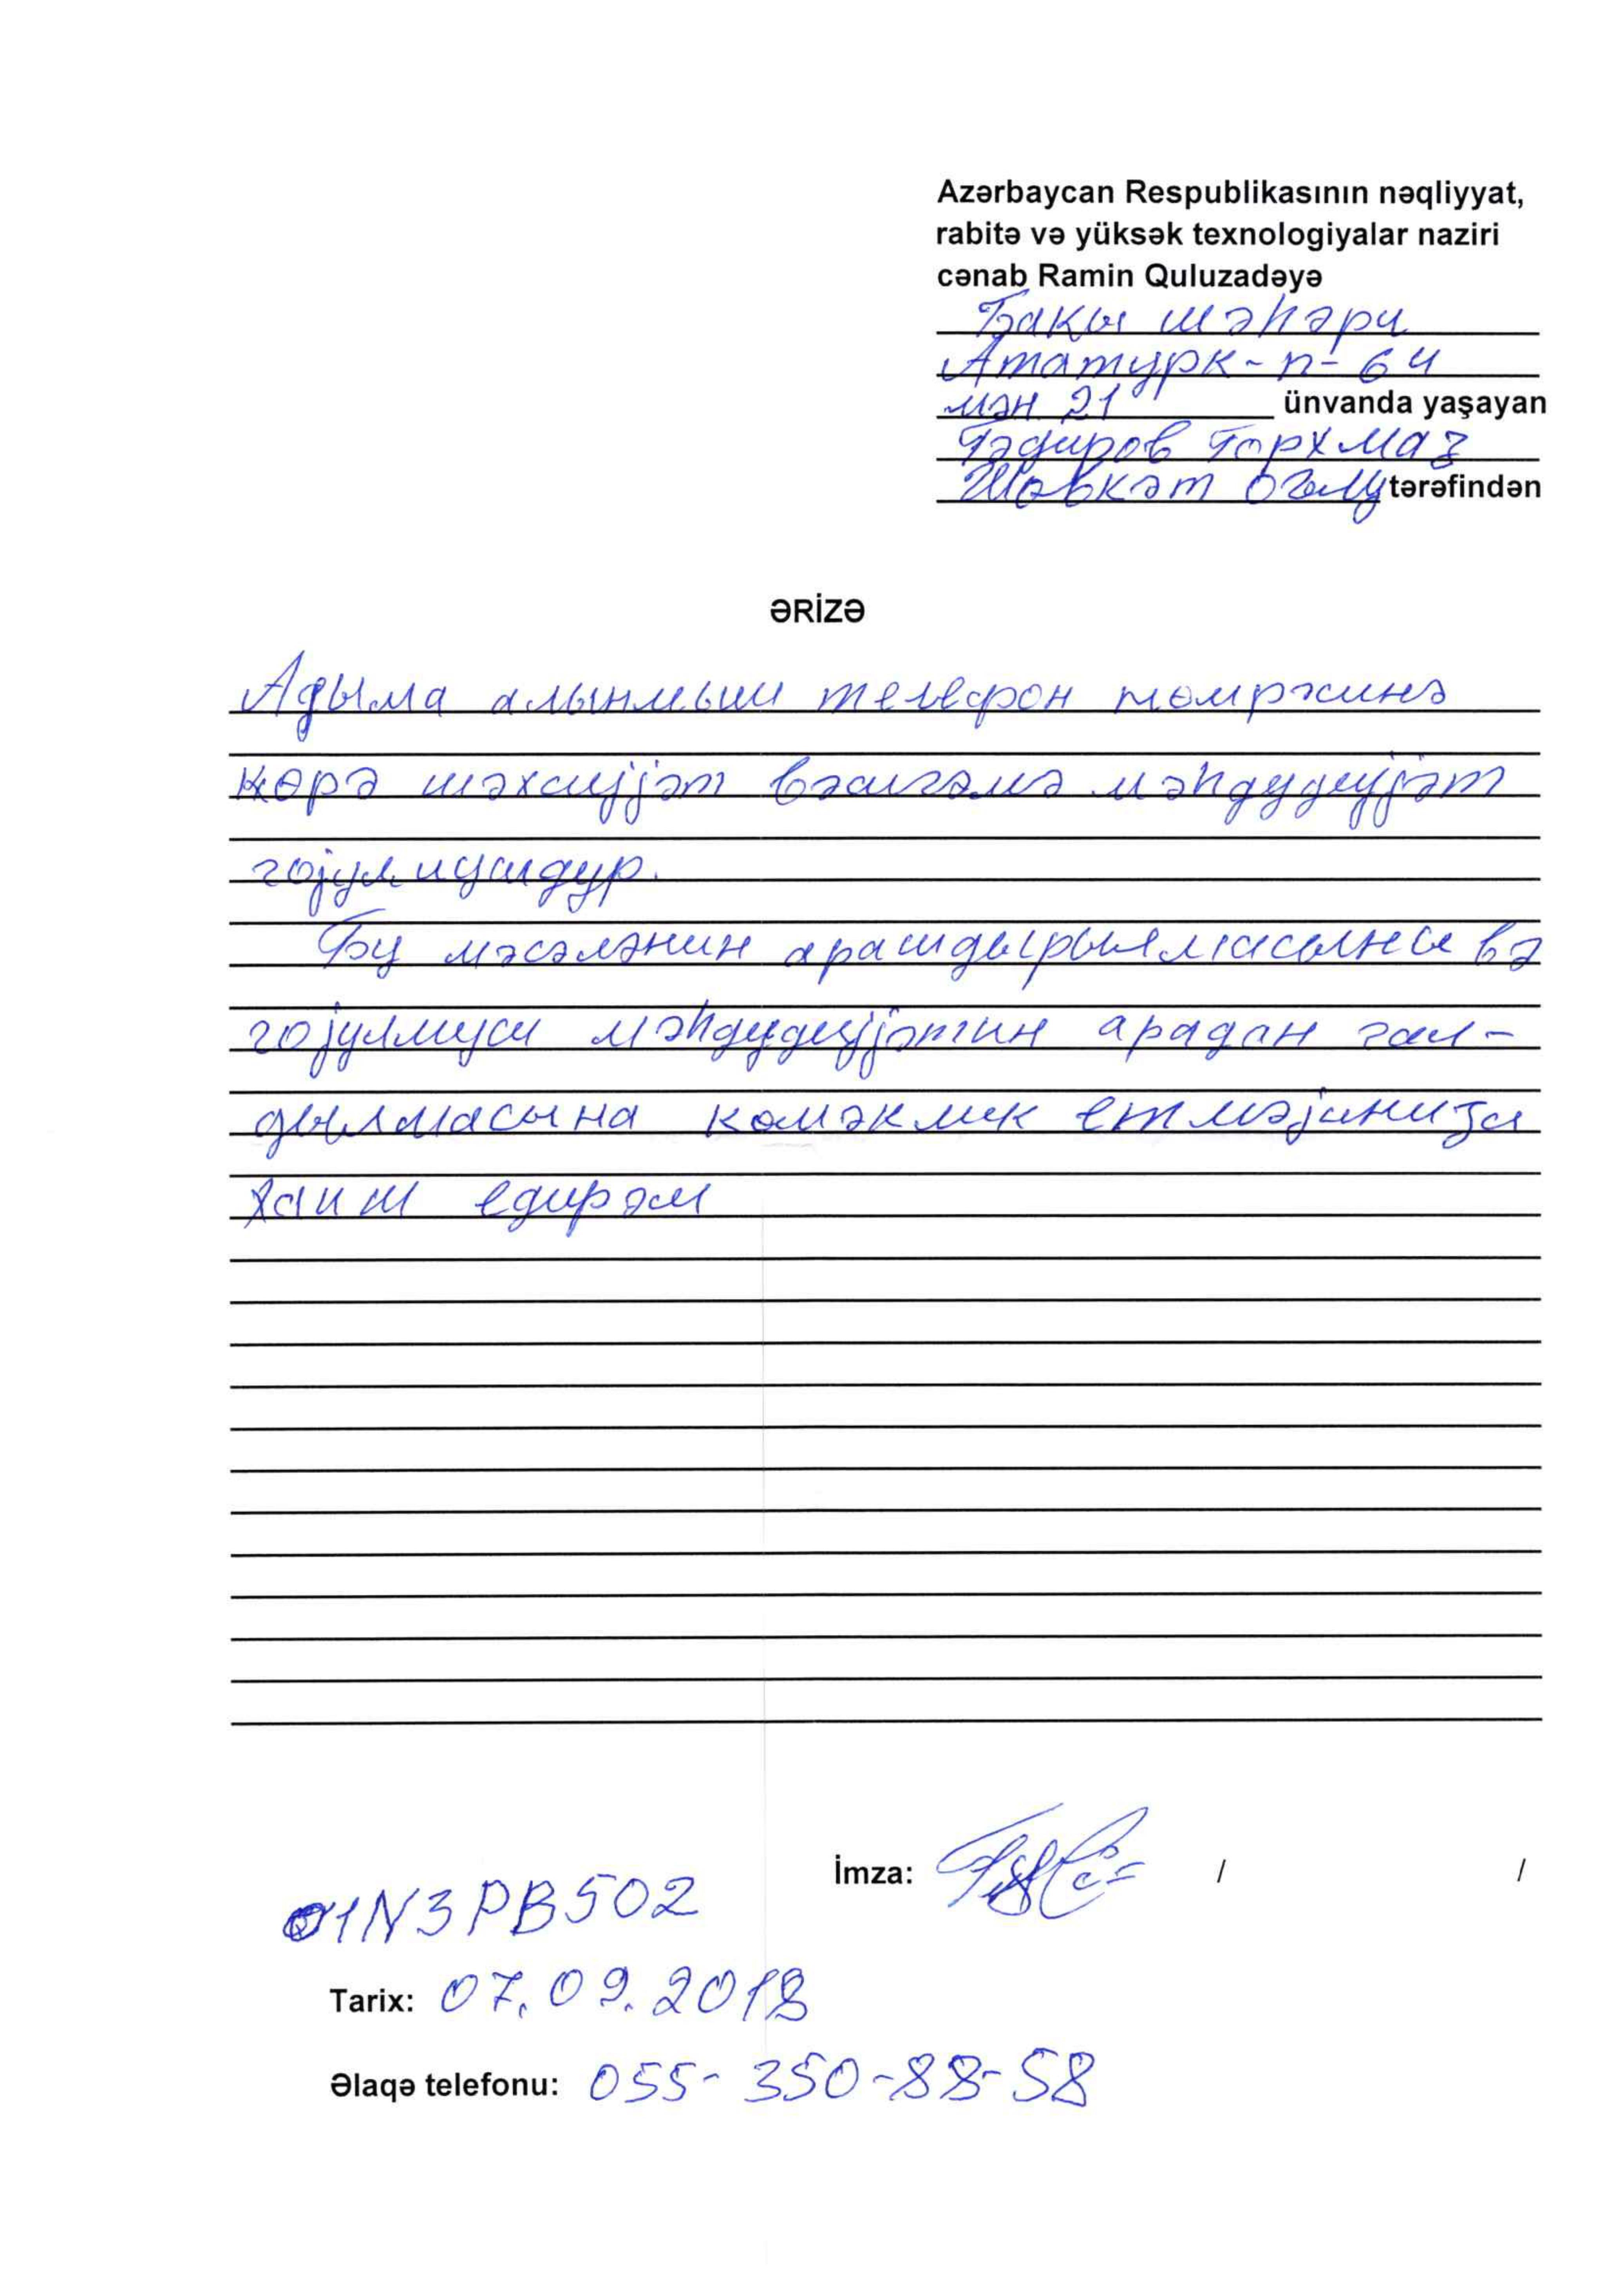 Azərbaycan Respublikasının nəqliyyat,
rabitə və yüksək texnologiyalar naziri
cənab Ramin Quluzadəyə
Бакы шәһәри
Ататурк-п-64
мән 21 ünvanda yaşayan
Гәдиров Горхмаз
Шөвкәт оғлу tərəfindən
ƏRİZƏ
Адыма алынмыш телефон нөмрәсинә
көрә шәхсијјәт вәсигәмә мәһдудијјәт
гојулмушдур.
Бу мәсәләнин арашдырылмасыны вә
гојулмуш мәһдудијјәтин арадан гал-
дылмасына көмәклик етмәјинизи
хаиш едирәм
İmza: / /
01N3PB502
Tarix: 07.09.2018
Əlaqə telefonu: 055-350-88-58